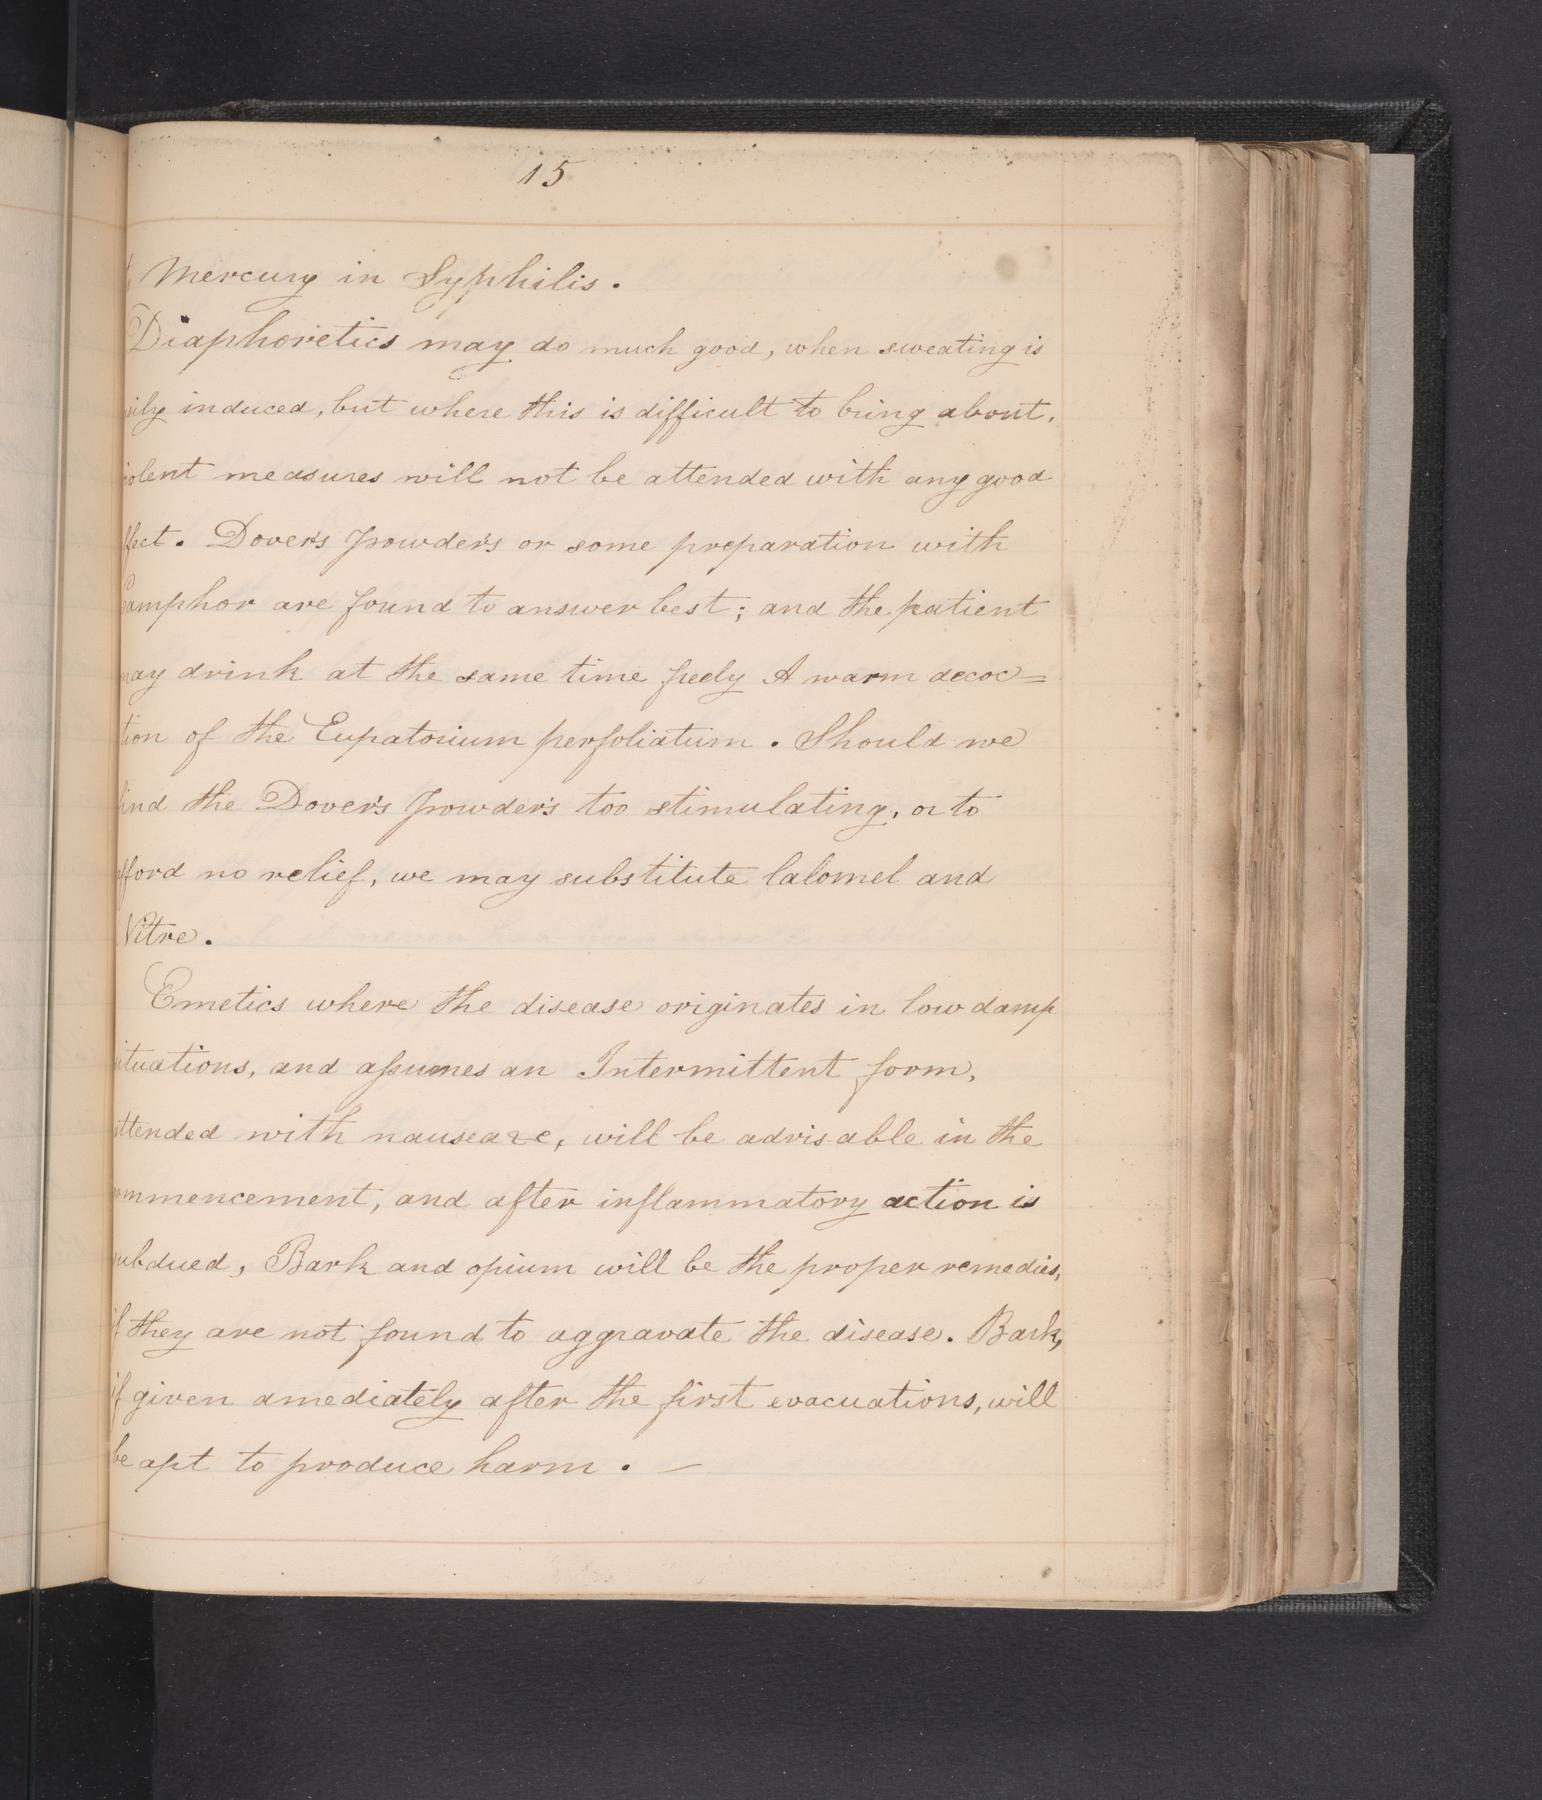 15
Mercury in Syphilis.
Diaphoretics may do much good, when sweating is
sily induced, but where this is difficult to bring about,
iolent measures will not be attended with any good
ffect. Dover's Powder's or some preparation with
Camphor are found to answer best; and the patient
may drink at the same time freely A warm decoc=
tion of the Eupatorium perfoliatum. Should we
find the Dover's Powder's too stimulating, or to
fford no relief, we may substitute Calomel and
Nitre.
Emetics where the disease originates in low damp
ituations, and assumes an Intermittent form,
ttended with nauseaze, will be advisable in the
ommencement, and after inflammatory action is
ubdued, Bark and opium will be the proper remedies,
if they are not found to aggravate the disease. Bark,
if given amediately after the first evacuations, will
be apt to produce harm. —